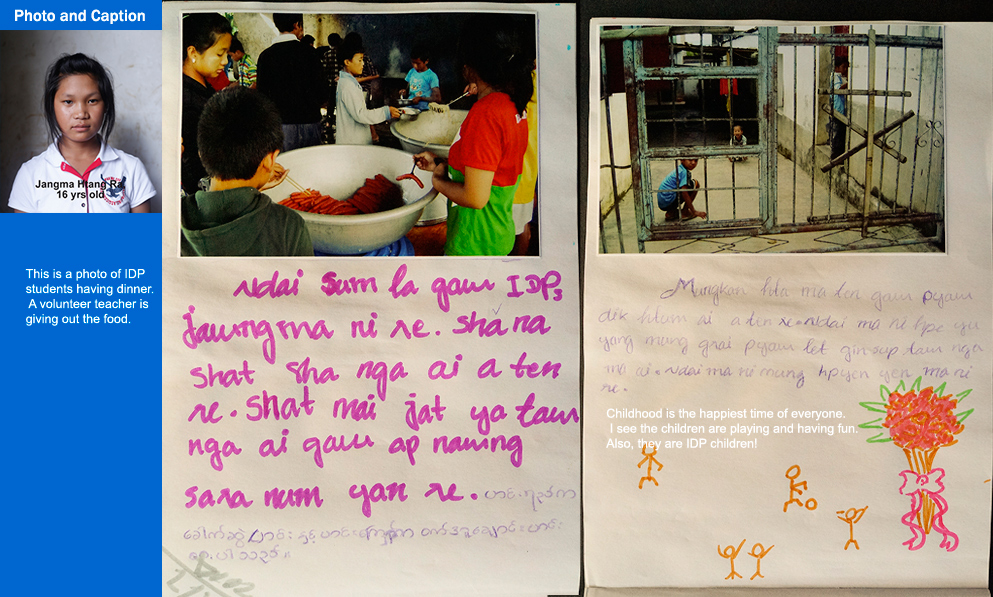 Photo and Caption
Jangma Htang Ra,
16 yrs old
This is a photo of IDP
students having dinner.
A volunteer teacher is
giving out the food.
Ndai Sum la gaw IDPs
jawngma ni re. shana
shat sha nga ai a ten
re. Shat mai jat ya taw
nga ai gaw ap nawng
sara num yan re.
Mungkan hta ma ten gaw pyaw
dik htum ai a ten re. Ndai ma ni hpe yu
yang mung grai pyaw let ginsup taw nga
ma ai. Ndai ma ni mung hpyen yen ma ni
re.
Childhood is the happiest time of everyone.
I see the children are playing and having fun.
Also, they are IDP children!